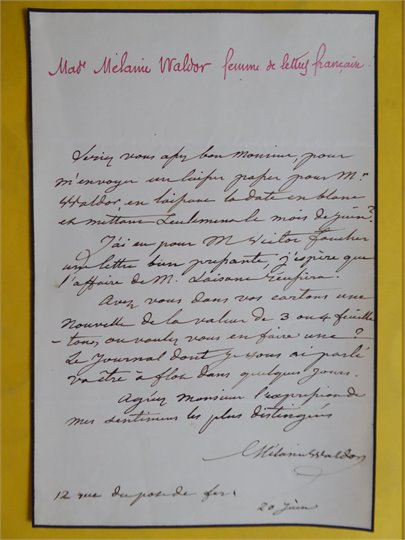 Mad^e Mélanie Waldor femme de lettres française.
Seriez vous assez bon Monsieur, pour
m'envoyer un laisser passer pour M^r
Waldor, en laissant la date en blanc
et mettant seulement le mois de juin?
J'ai eu pour M Victor Foucher
une lettre bien pressante, j'espère que
l'affaire de M. réussira.
Avez vous dans vos cartons une
nouvelle de la valeur de 3 ou 4 feuille
-tons, ou voulez vous en faire une?
Le Journal dont je vous ai parlé
va être à flot dans quelques jours.
Agréez Monsieur l'expression de
mes sentimens les plus distingués
Mélanie Waldor
12 rue du pot de fer.
20 juin